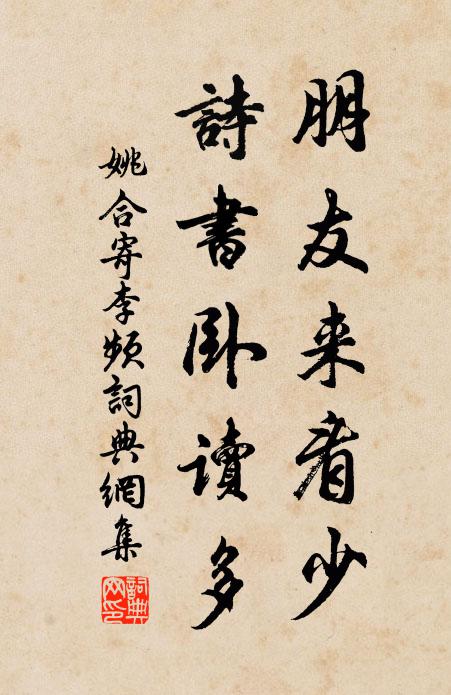 朋友来看少
詩書卧讀多
姚合寄李頻詞典網集
詞典网印